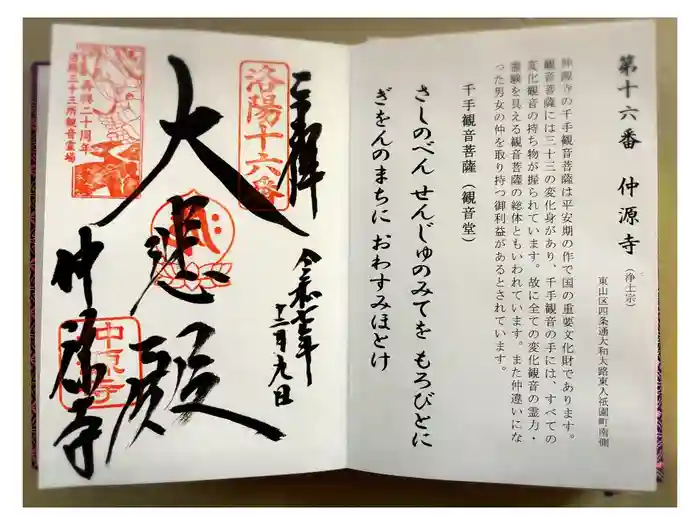 第十六番 仲源寺
（浄土宗）
東山区四条通大和大路東入祇園町南側
仲源寺の千手観音菩薩は平安期の作で国の重要文化財であります。
観音菩薩には三十三の変化身があり、千手観音の手には、すべての
変化観音の持ち物が握られています。故に全ての変化観音の霊力・
霊験を具える観音菩薩の総体ともいわれています。また仲違いにな
った男女の仲を取り持つ御利益があるとされています。
千手観音菩薩（観音堂）
さしのべん せんじゅのみてを もろびとに
ぎをんのまちに おわすみほとけ
奉拝
令和七年
十二月九日
洛陽十六番
大悲殿
仲源寺
再興二十周年
洛陽三十三所観音霊場
仲源寺